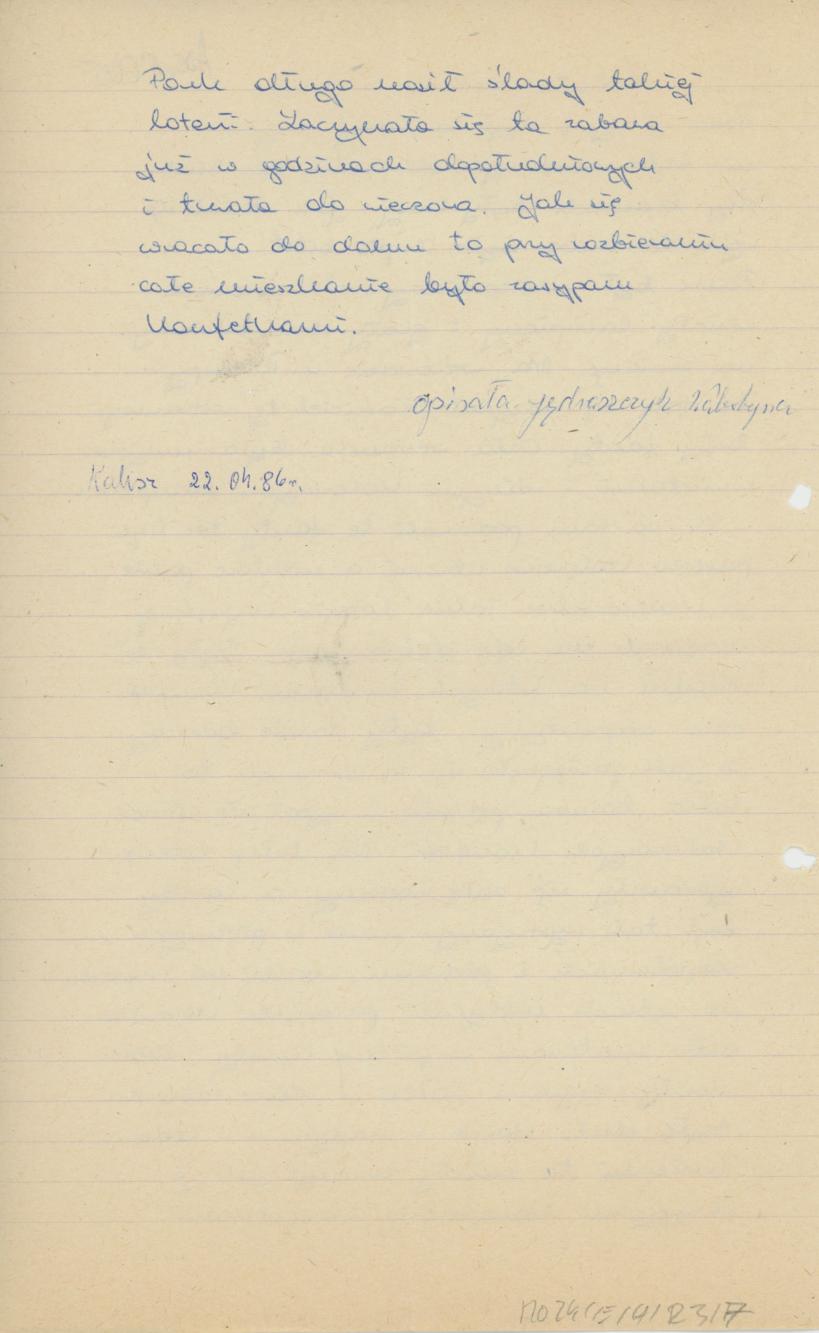 Park długo nosił ślady takiej
loterii. Zaczynała się ta zabawa
już w godzinach dopołudniowych
i trwała do wieczora. Jak się
wracało do domu to przy rozbieraniu
całe mieszkanie było zasypane
Konfetkami.
opisała Jędraszczyk
Kalisz 22.04.86r.